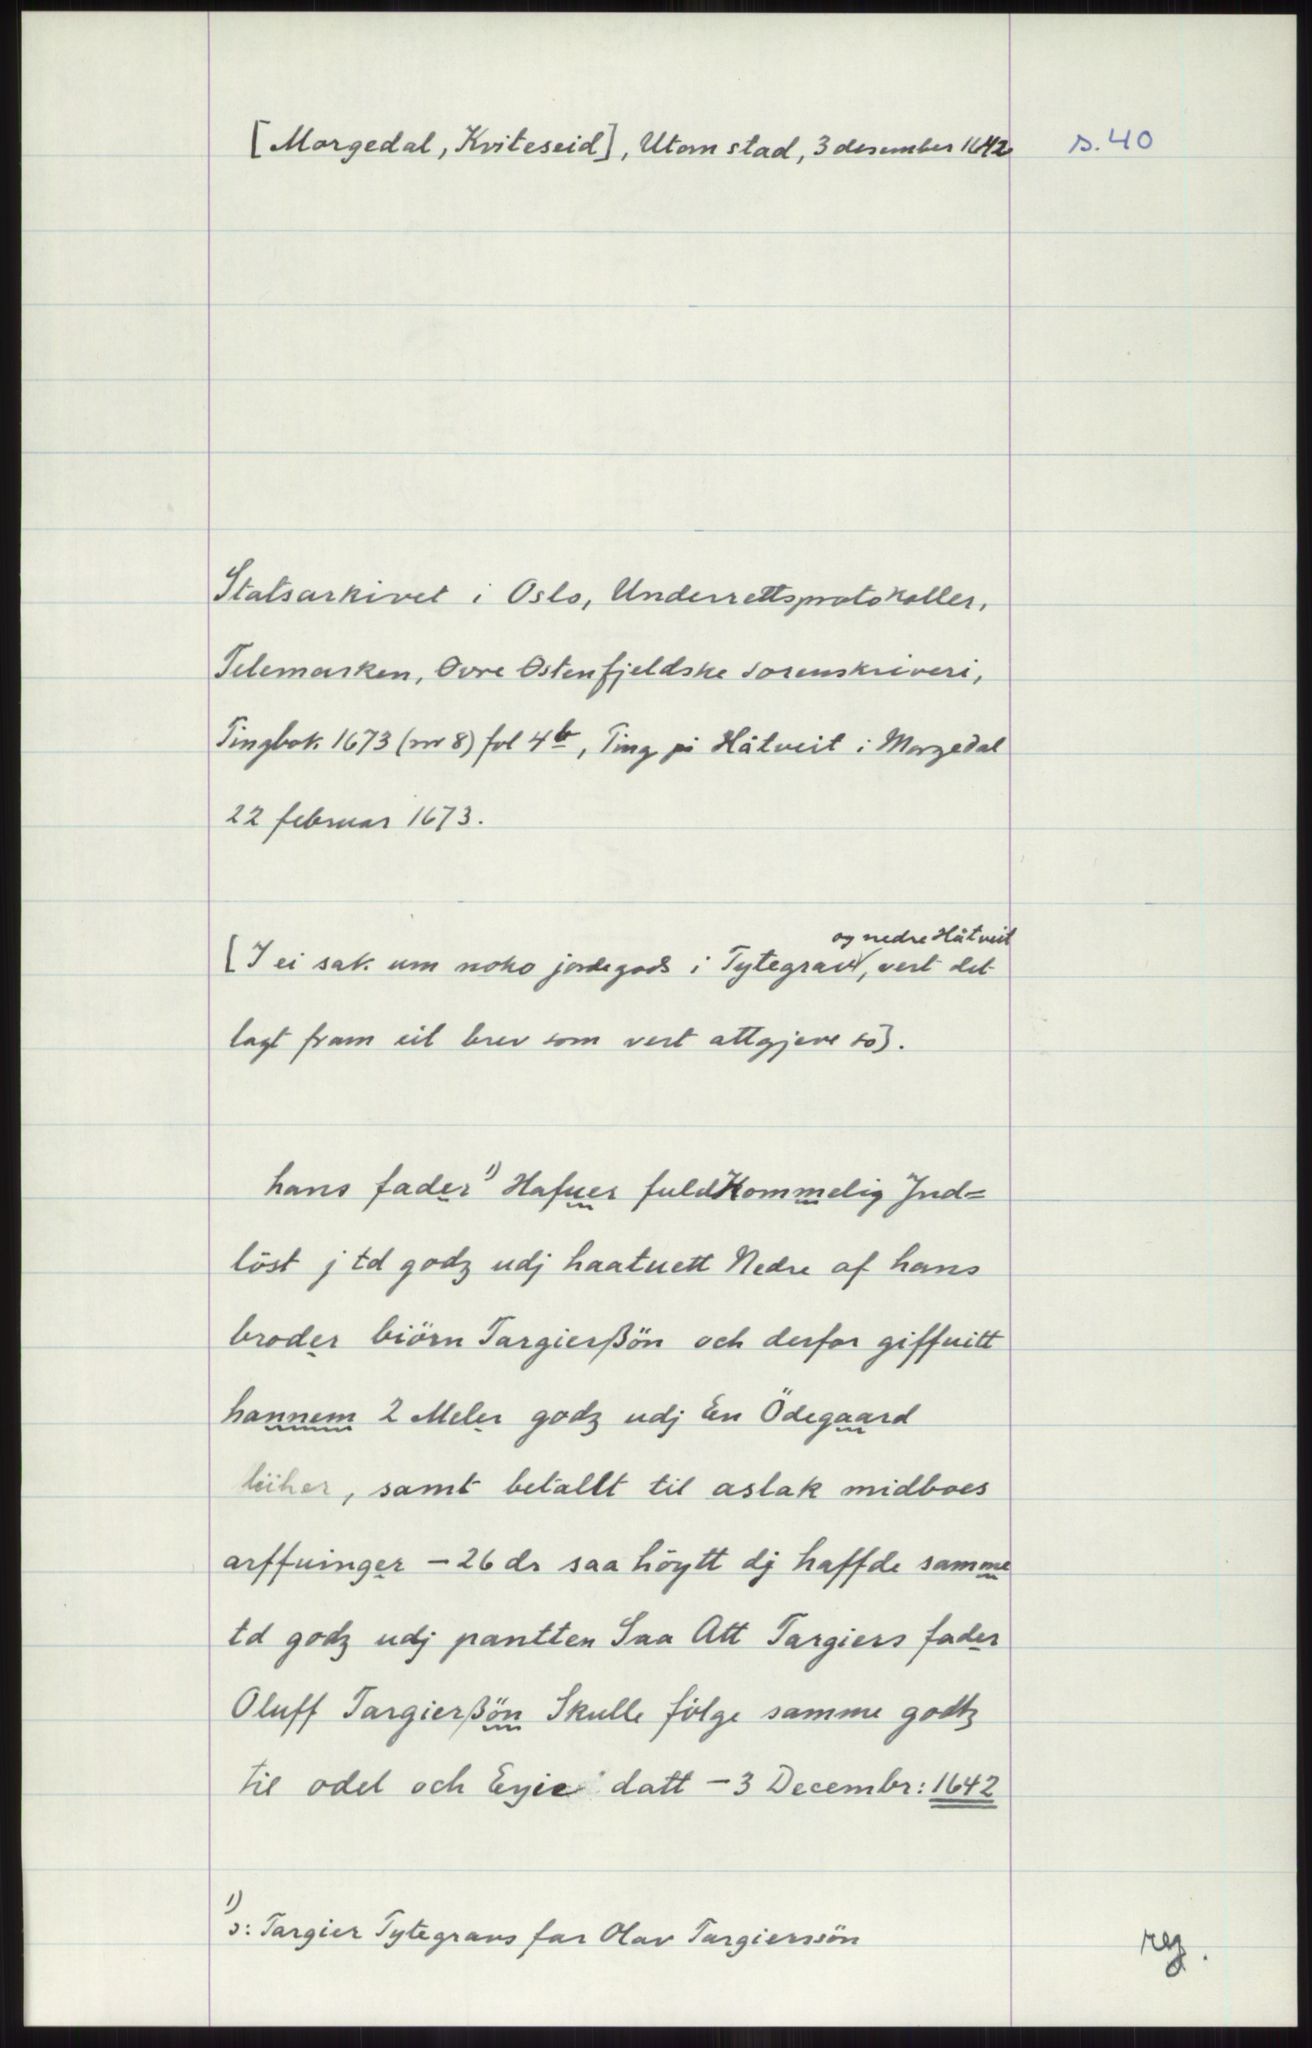 [Morgedal, Kviteseid], Utom stad, 3 desember 1642 s. 40
Statsarkivet i Oslo, Underrettsprotokoller,
Telemarken, Øvre Østenfjeldske sorenskriveri,
Tingbok 1673 (nr 8) fol 4b, Ting på Håtveit i Morgedal
22 februar 1673.
og nedre Håtveit
[I ei sak um noko jordegods i Tytegrav, vert det
lagt fram eit brev som vert attgjeve so].
hans fader 1) Hafuer fuldkommelig Ind=
löst j td godz udj haatuett Nedre af hans
broder biörn Targierßön och derfor giffuitt
hannem 2 Meler godz udj En Ödegaard
, samt betallt til aslak midboes
arffuinger – 26 dr saa höytt dj haffde samme
td godz udj pantten Saa Att Targiers fader
Oluff Targierßön Skulle fölge samme godtz
til odel och Eyie datt – 3 Decembr: 1642
1)
ɔ: Targier Tytegravs far Olav Targierssön
reg.